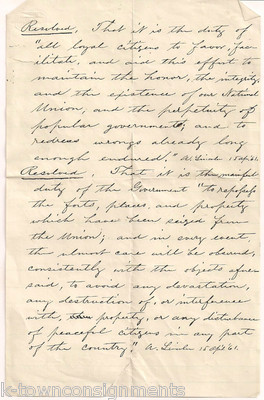 Resolved, That it is the duty of
"all loyal citizens to favor, fac-
ilitate, and aid this effort to
maintain the honor, the integrity,
and the existence of our National
Union, and the perpetuity of
popular government; and to
redress wrongs already long
enough endured." A. Linc 15 Apl 61.
Resolved, That it is the manifest
duty of the Government "to repossess
the forts, places, and property
which have been seized from
the Union; and in every event,
the utmost care will be observed,
consistently with the objects afore-
said, to avoid any devastation,
any destruction of, or interference
with, property, or any disturbance
of peaceful citizens in any part
of the country." A. Linc 15 Apl 61.
k-townconsignments